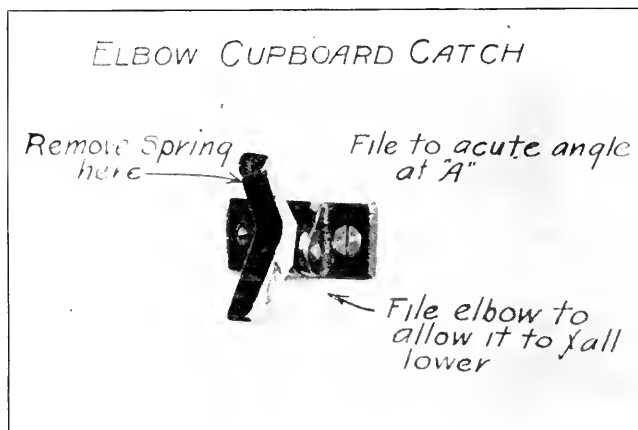 ELBOW CUPBOARD CATCH
Remove Spring
here
File to acute angle
at "A"
File elbow to
allow it to fall
lower